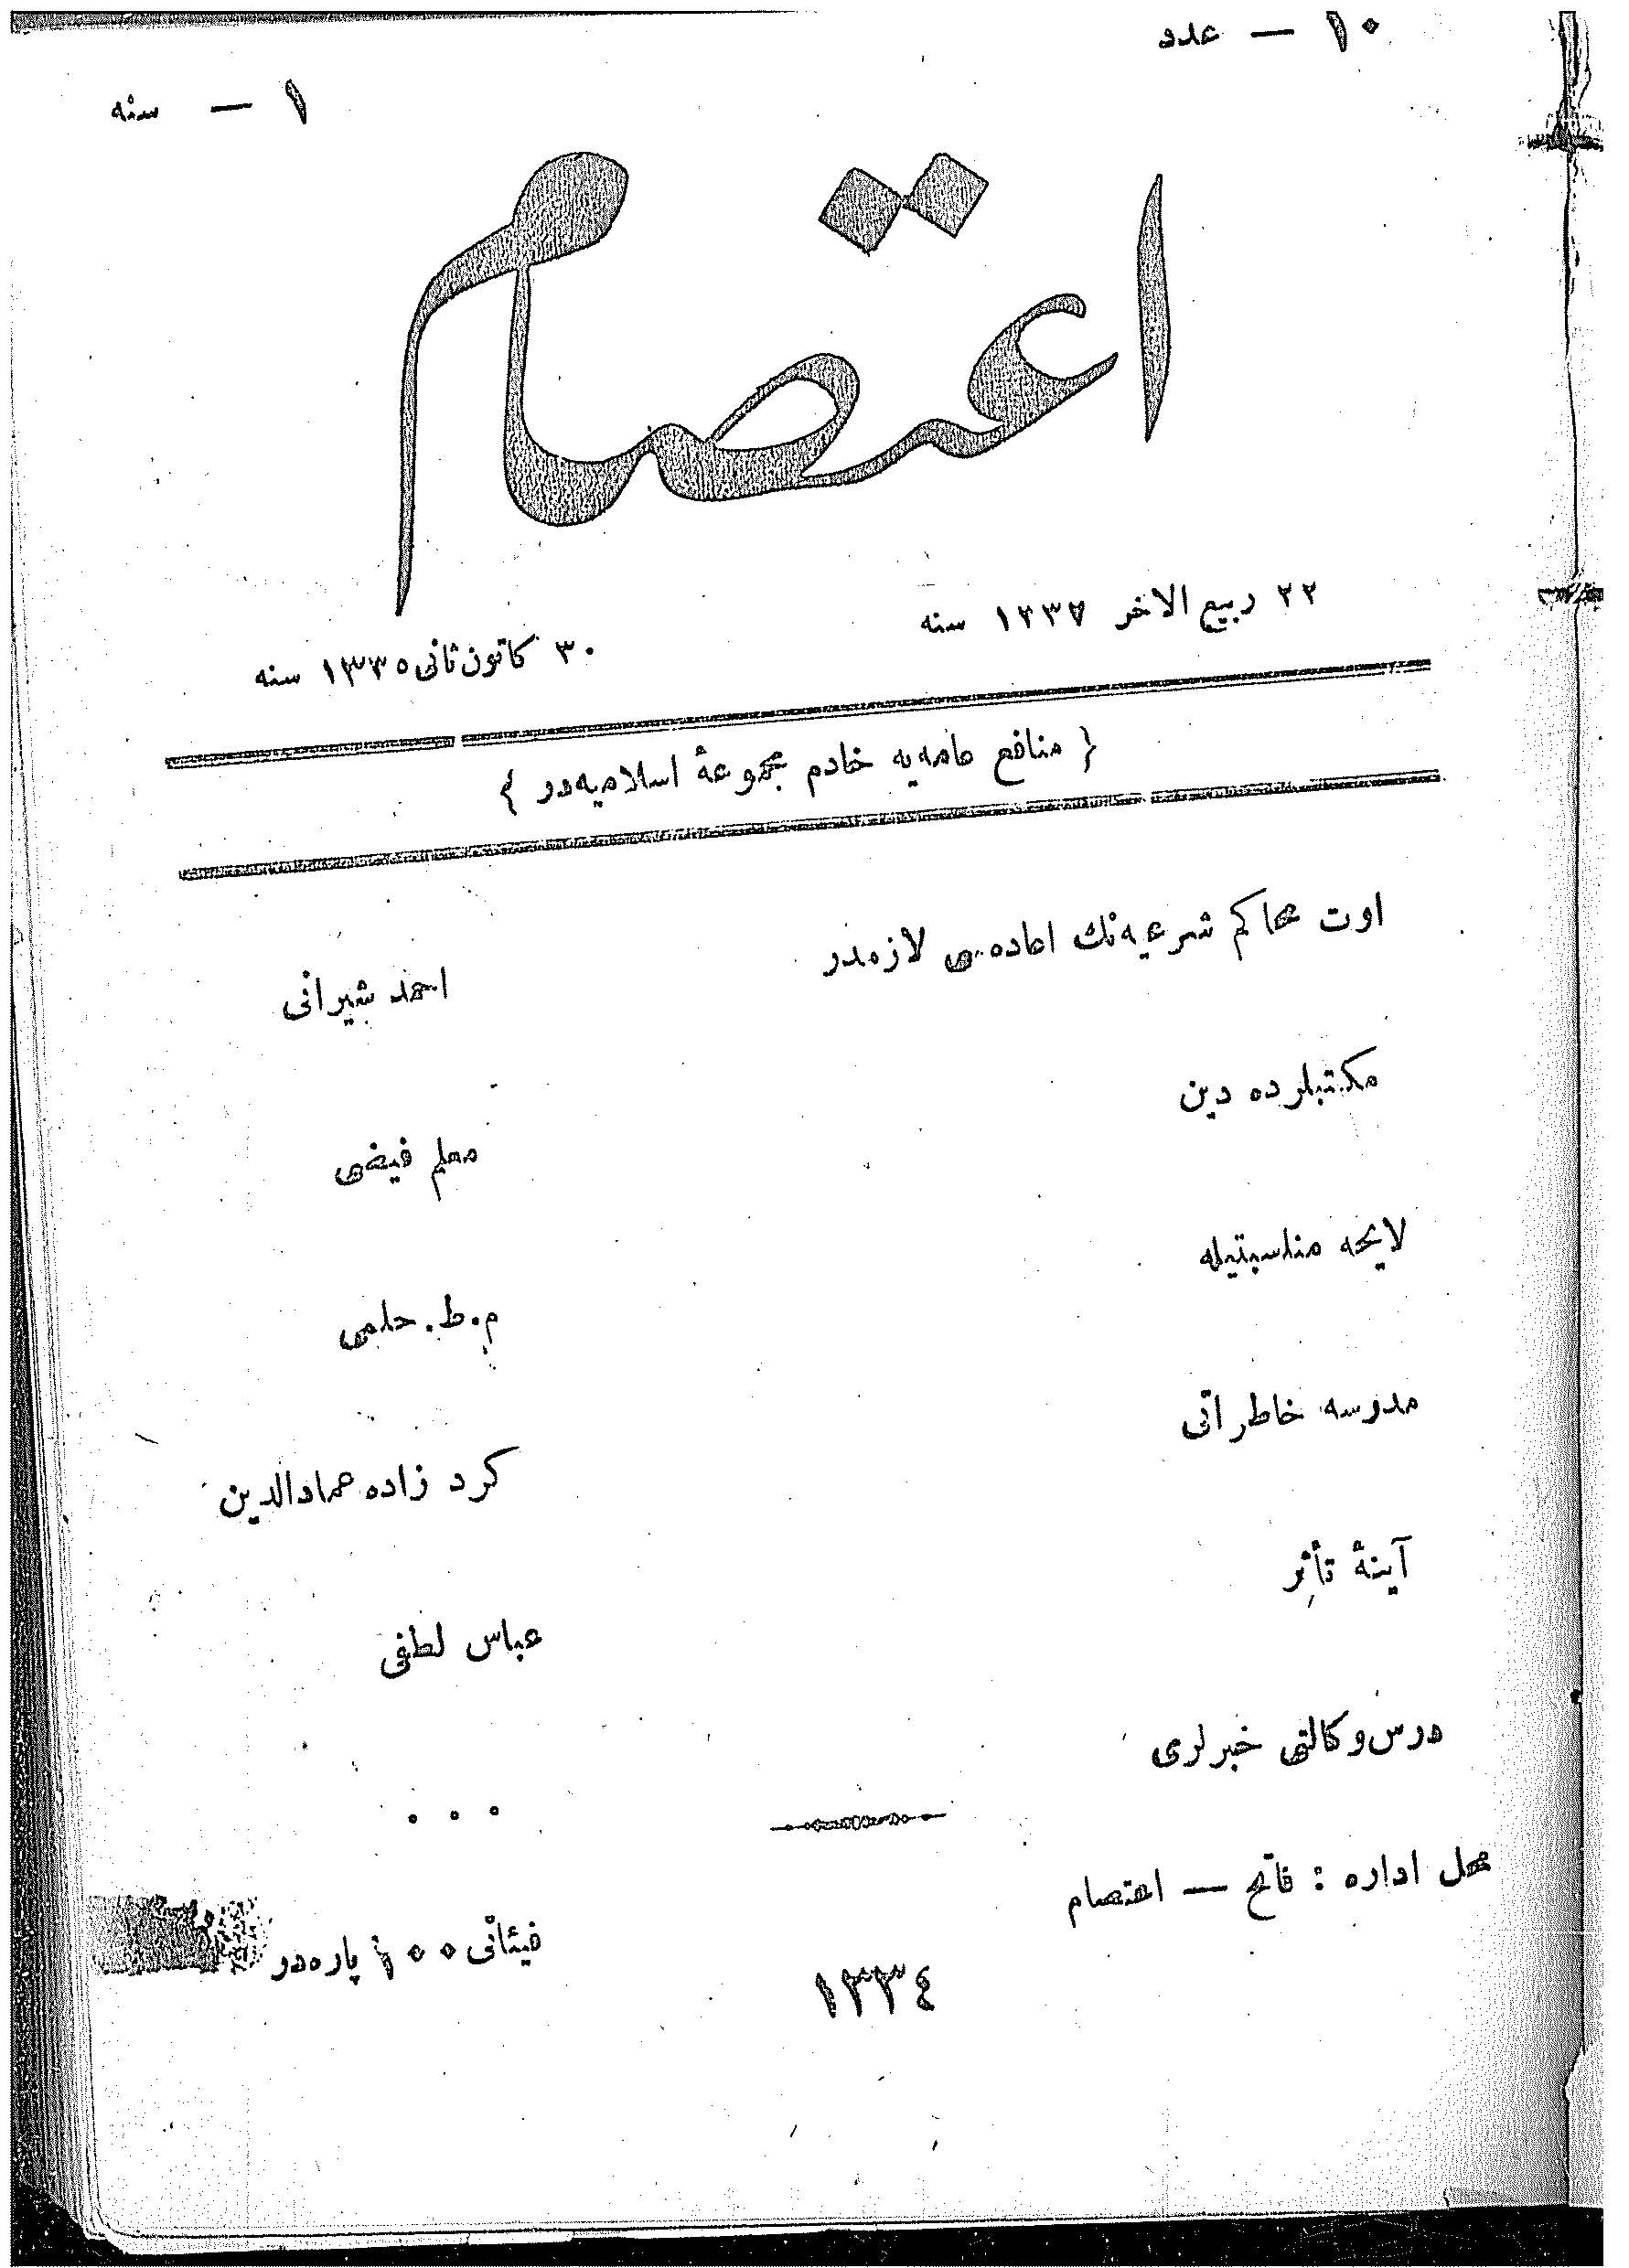 ۱۰ — عدد
۱ — سنه
اعتصام
۲۲ ربیع الاخر ۱۳۳۷ سنه
۳۰ كانون ثانی ۱۳۳۵ سنه
{ منافع عامه‌یه خادم مجموعهٔ اسلامیه‌در }
اوت محاكم شرعیه‌نك اعاده‌سی لازمدر
احمد شیرانی
مكتبلرده دین
معلم فیضی
لایحه مناسبتیله
م. ط. حلمی
مدرسه خاطراتی
كرد زاده عمادالدین
آینهٔ تأثر
عباس لطفی
درس وكالتی خبرلری
۰ ۰ ۰
محل اداره : فاتح — اعتصام
فیئاتی ۱۰۰ پاره‌در
۱۳۳٤